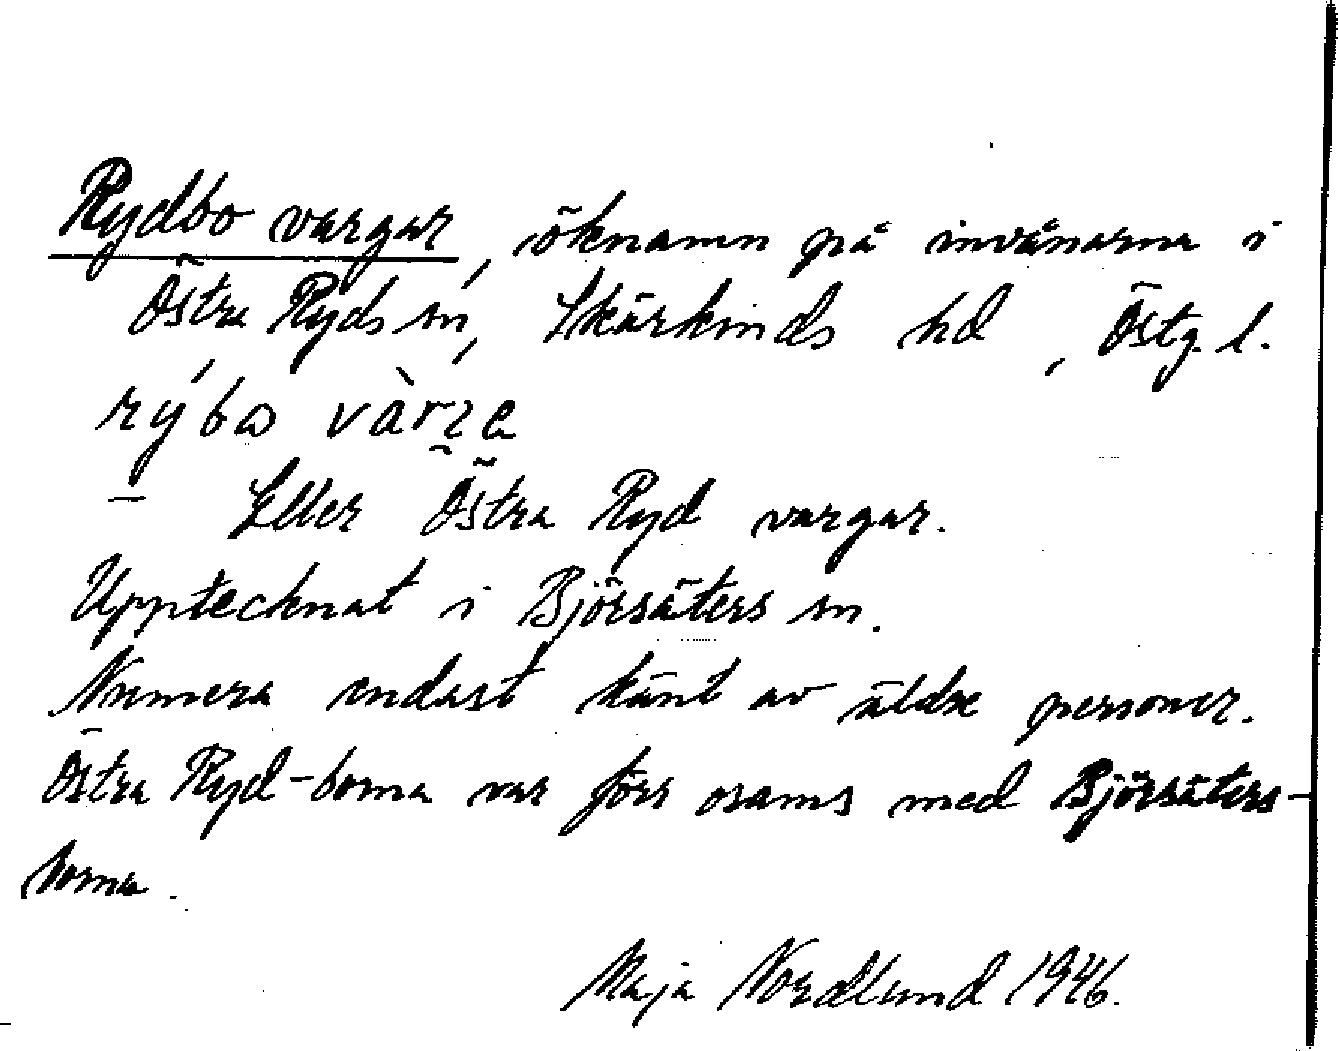 Rydbo vargar, öknamn på invånarna i
Östra Ryds sn, Skärkinds hd, Östg. l.
Eller Östra Ryd vargar.
Upptecknat i Björsäters sn.
Numera endast känt av äldre personer.
Östra Ryd-borna var förr osams med Björsäters-
borna.
Maja Nordlund 1946.